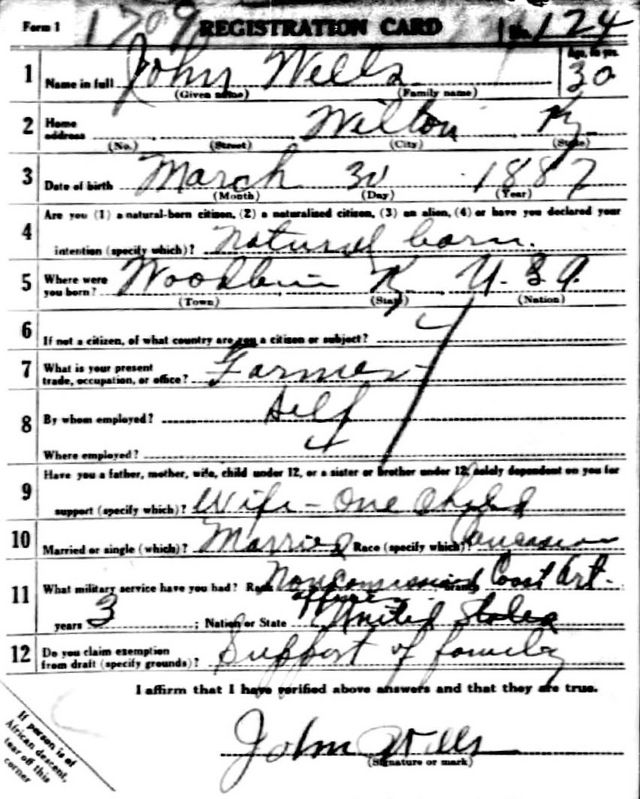 Form 1 1709 REGISTRATION CARD No. 124
1 Name in full John Wells Age, in yrs. 30
(Given name) (Family name)
2 Home address Wilton Ky
(No.) (Street) (City) (State)
3 Date of birth March 30 1887
(Month) (Day) (Year)
4 Are you (1) a natural-born citizen, (2) a naturalized citizen, (3) an alien, (4) or have you declared your
intention (specify which)? natural born.
5 Where were you born? Woodbin Ky U.S.A.
(Town) (State) (Nation)
6 If not a citizen, of what country are you a citizen or subject?
7 What is your present trade, occupation, or office? Farmer
8 By whom employed? Self
Where employed?
9 Have you a father, mother, wife, child under 12, or a sister or brother under 12, solely dependent on you for
support (specify which)? Wife - One Child
10 Married or single (which)? Married Race (specify which)? Caucasian
11 What military service have you had? Rank Noncommissiond officer Branch Coast Art.
years 3 ; Nation or State United States
12 Do you claim exemption from draft (specify grounds)? Support of family
I affirm that I have verified above answers and that they are true.
John Wells
(Signature or mark)
If person is of
African descent,
tear off this
corner